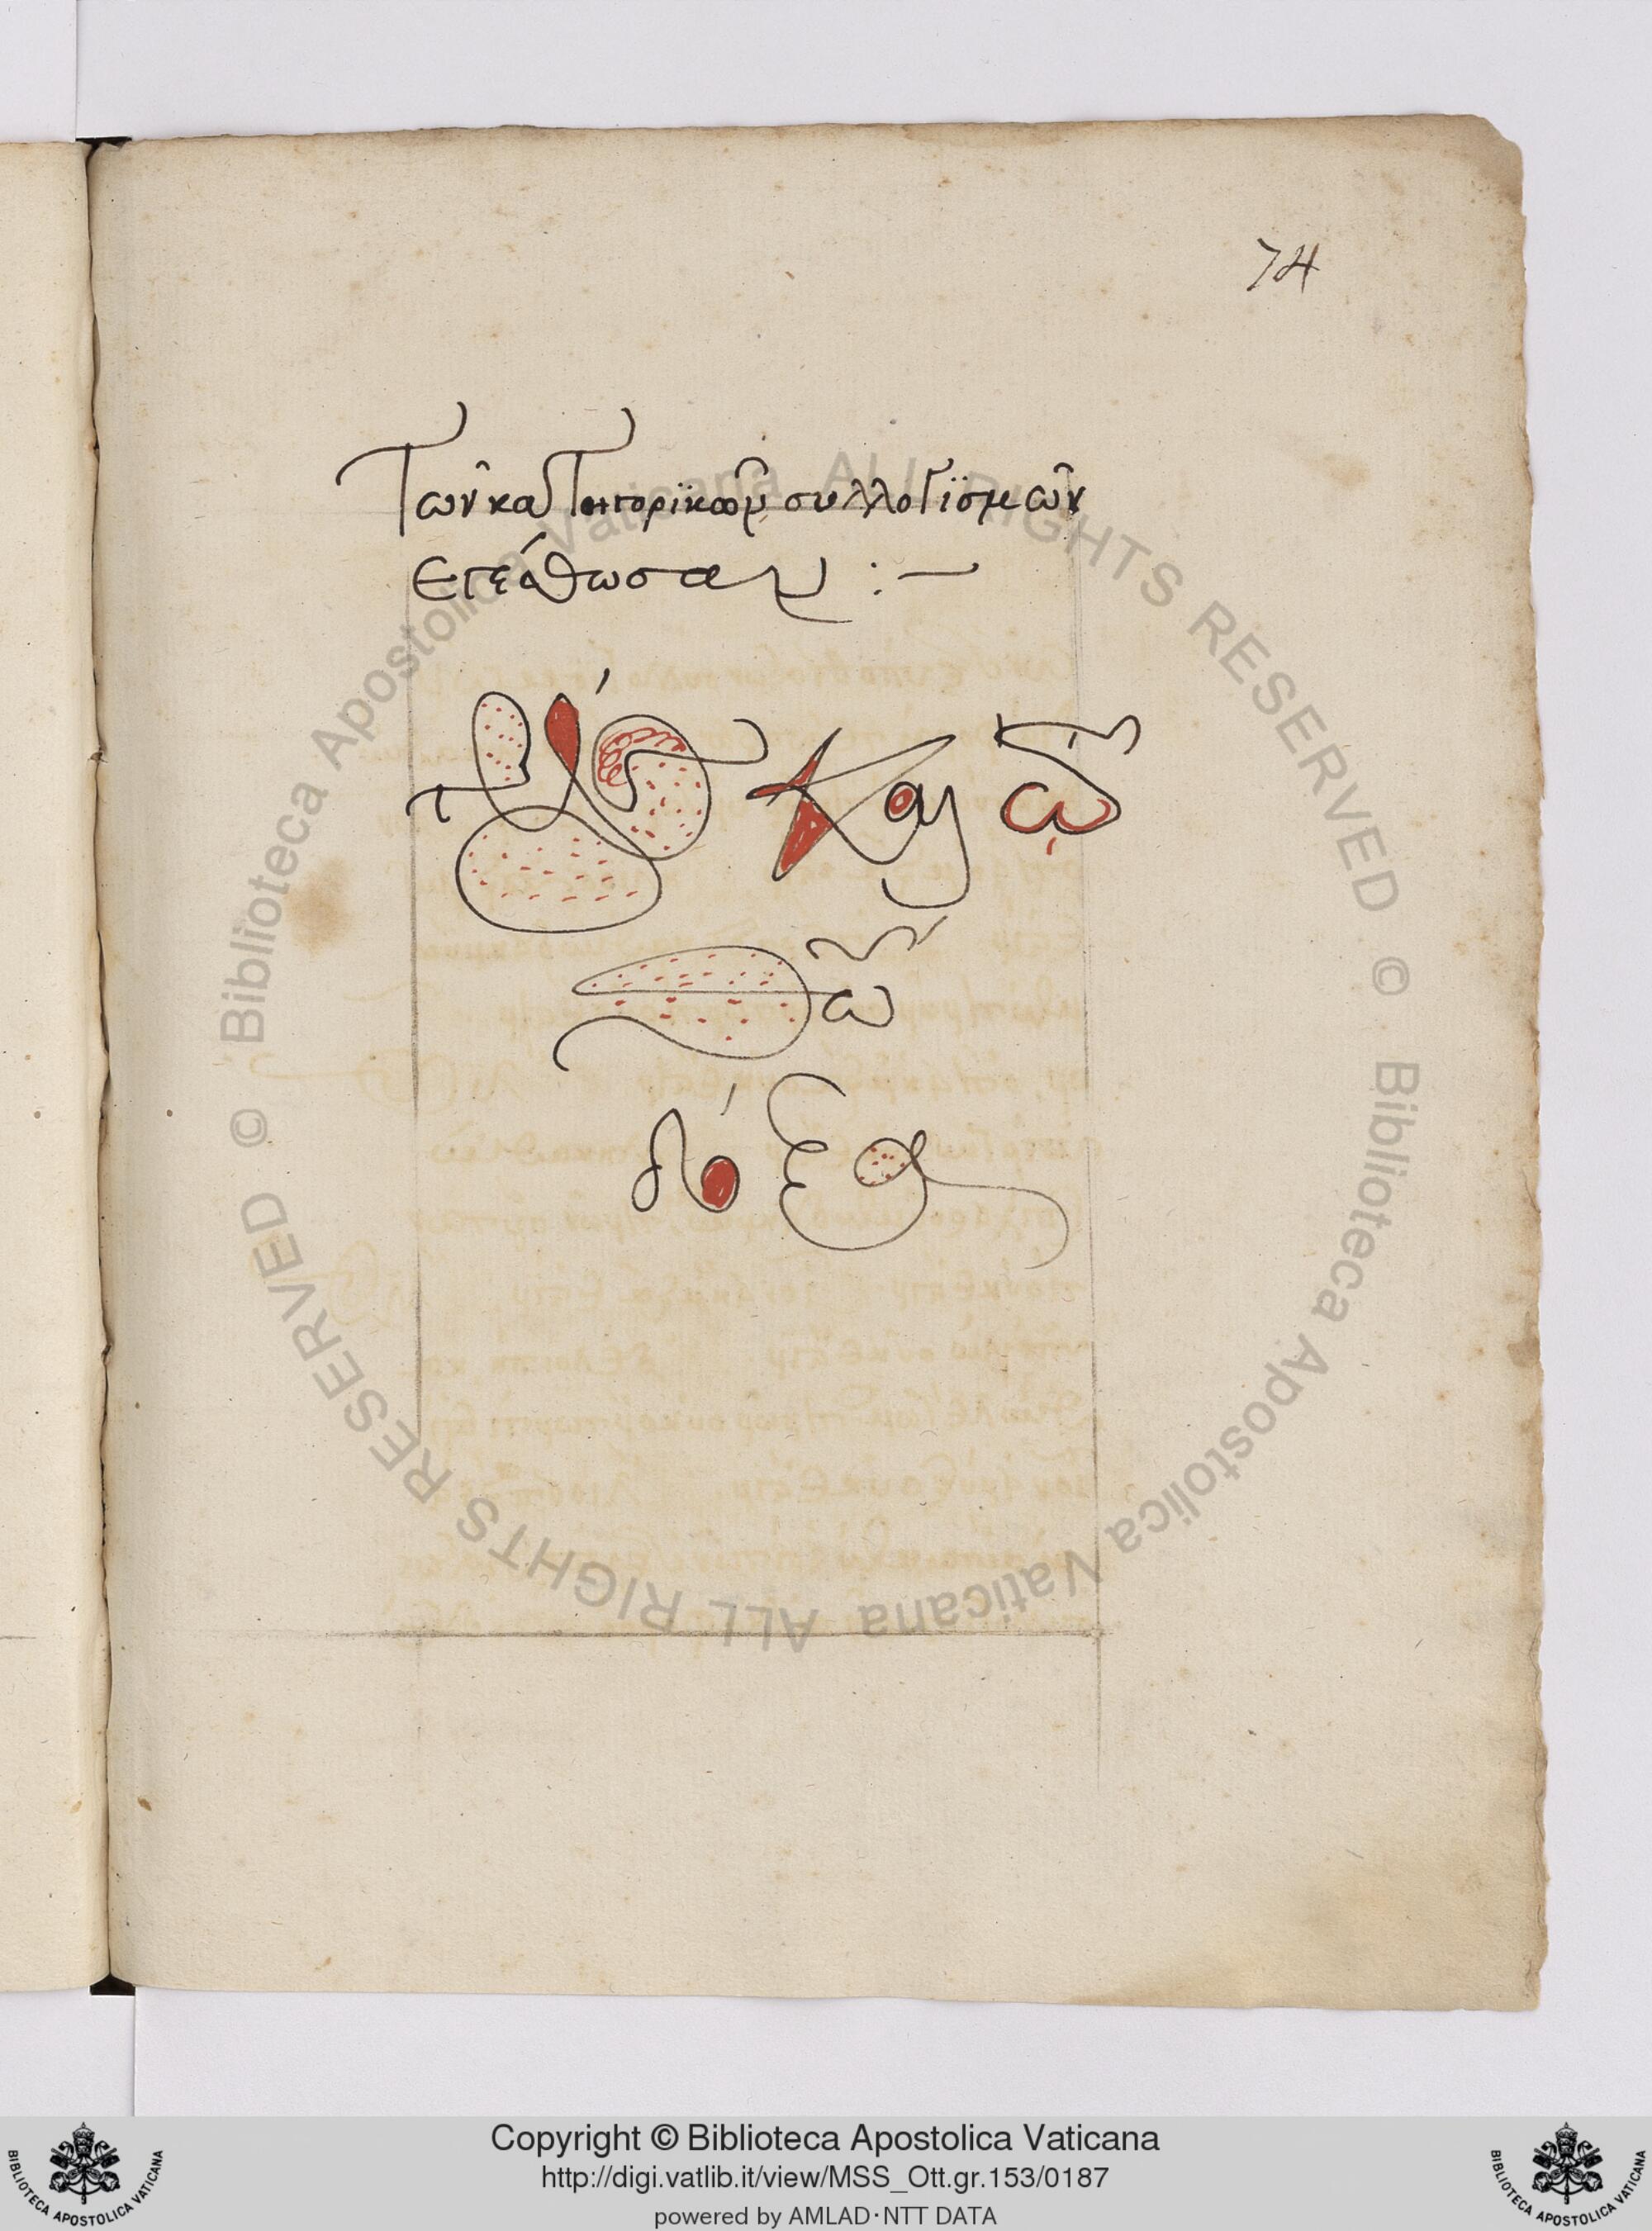 74
Τῶν κατηγορϊκῶν συλλογϊσμῶν
Τέλος καὶ τῷ
Θῶ
δόξα
Biblioteca Apostolica Vaticana ALL RIGHTS RESERVED © Biblioteca Apostolica Vaticana ALL RIGHTS RESERVED ©
Copyright © Biblioteca Apostolica Vaticana
http://digi.vatlib.it/view/MSS_Ott.gr.153/0187
powered by AMLAD·NTT DATA
BIBLIOTECA APOSTOLICA VATICANA
BIBLIOTECA APOSTOLICA VATICANA